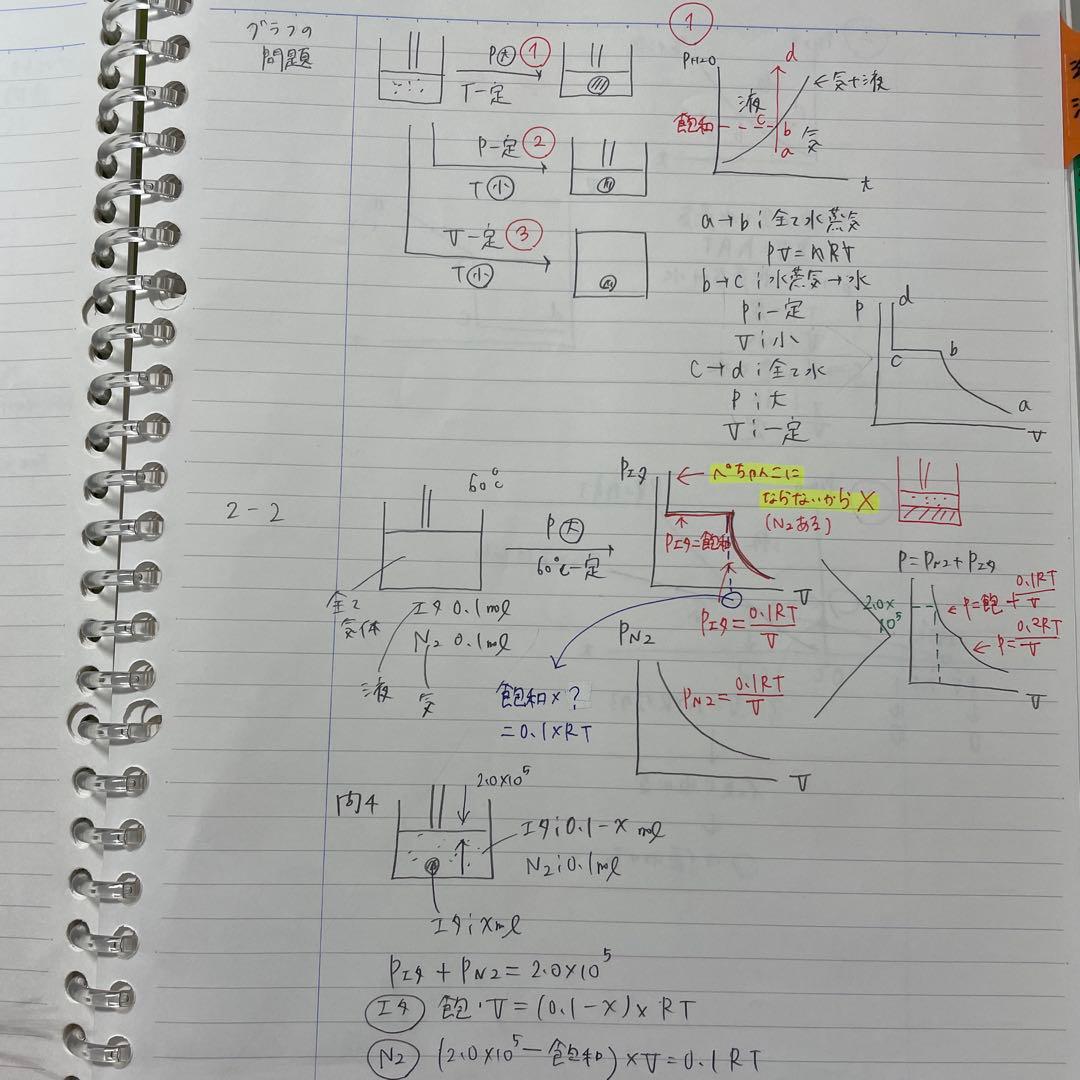 グラフの
問題
P大 ①
T一定
P一定 ②
T小
V一定 ③
T小
①
PH2O
d
←気+液
液
飽和
c
b
気
a
t
a→b；全て水蒸気
PV=nRT
b→c；水蒸気→水
P；一定
V；小
c→d；全て水
P；大
V；一定
P
d
c
b
a
V
2-2
60℃
P大
60℃一定
全て
気体
エタ 0.1mol
N2 0.1mol
液
気
Pエタ
← ぺちゃんこに
ならないから ×
(N2ある)
↑
Pエタ=飽和
V
Pエタ=0.1RT/V
飽和×?
=0.1×RT
PN2
PN2=0.1RT/V
V
P=PN2+Pエタ
2.0×
10^5
←P=飽+0.1RT/V
←P=0.2RT/V
V
問4
2.0×10^5
エタ；0.1-x mol
N2；0.1mol
エタ；xmol
Pエタ+PN2=2.0×10^5
エタ 飽・V=(0.1-x)×RT
N2 (2.0×10^5-飽和)×V=0.1RT